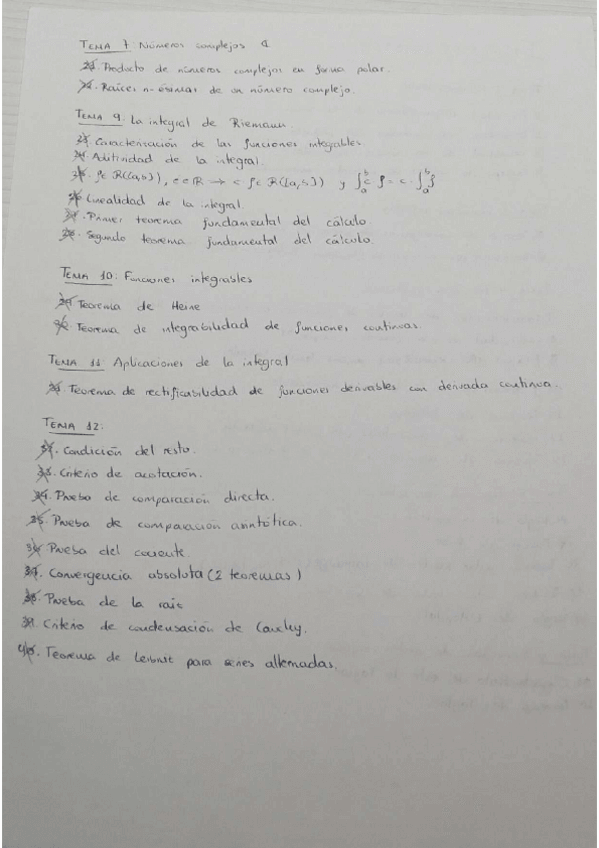 TEMA 7: Números complejos
Producto de números complejos en forma polar.
Raíces n-ésimas de un número complejo.
TEMA 9: La integral de Riemann.
Caracterización de las funciones integrables.
Aditividad de la integral.
f ∈ R([a,b]), c ∈ R → c f ∈ R([a,b]) y ∫_a^b c f = c · ∫_a^b f
Linealidad de la integral.
Primer teorema fundamental del cálculo.
Segundo teorema fundamental del cálculo.
TEMA 10: Funciones integrables
Teorema de Heine
Teorema de integrabilidad de funciones continuas.
TEMA 11: Aplicaciones de la integral
Teorema de rectificabilidad de funciones derivables con derivada continua.
TEMA 12:
Condición del resto.
33. Criterio de acotación.
34. Prueba de comparación directa.
35. Prueba de comparación
36 Prueba del cociente.
37. Convergencia absoluta (2 teoremas)
38. Prueba de la raíz
39 Criterio de condensación de Cauchy.
40. Teorema de Leibniz para series alternadas.